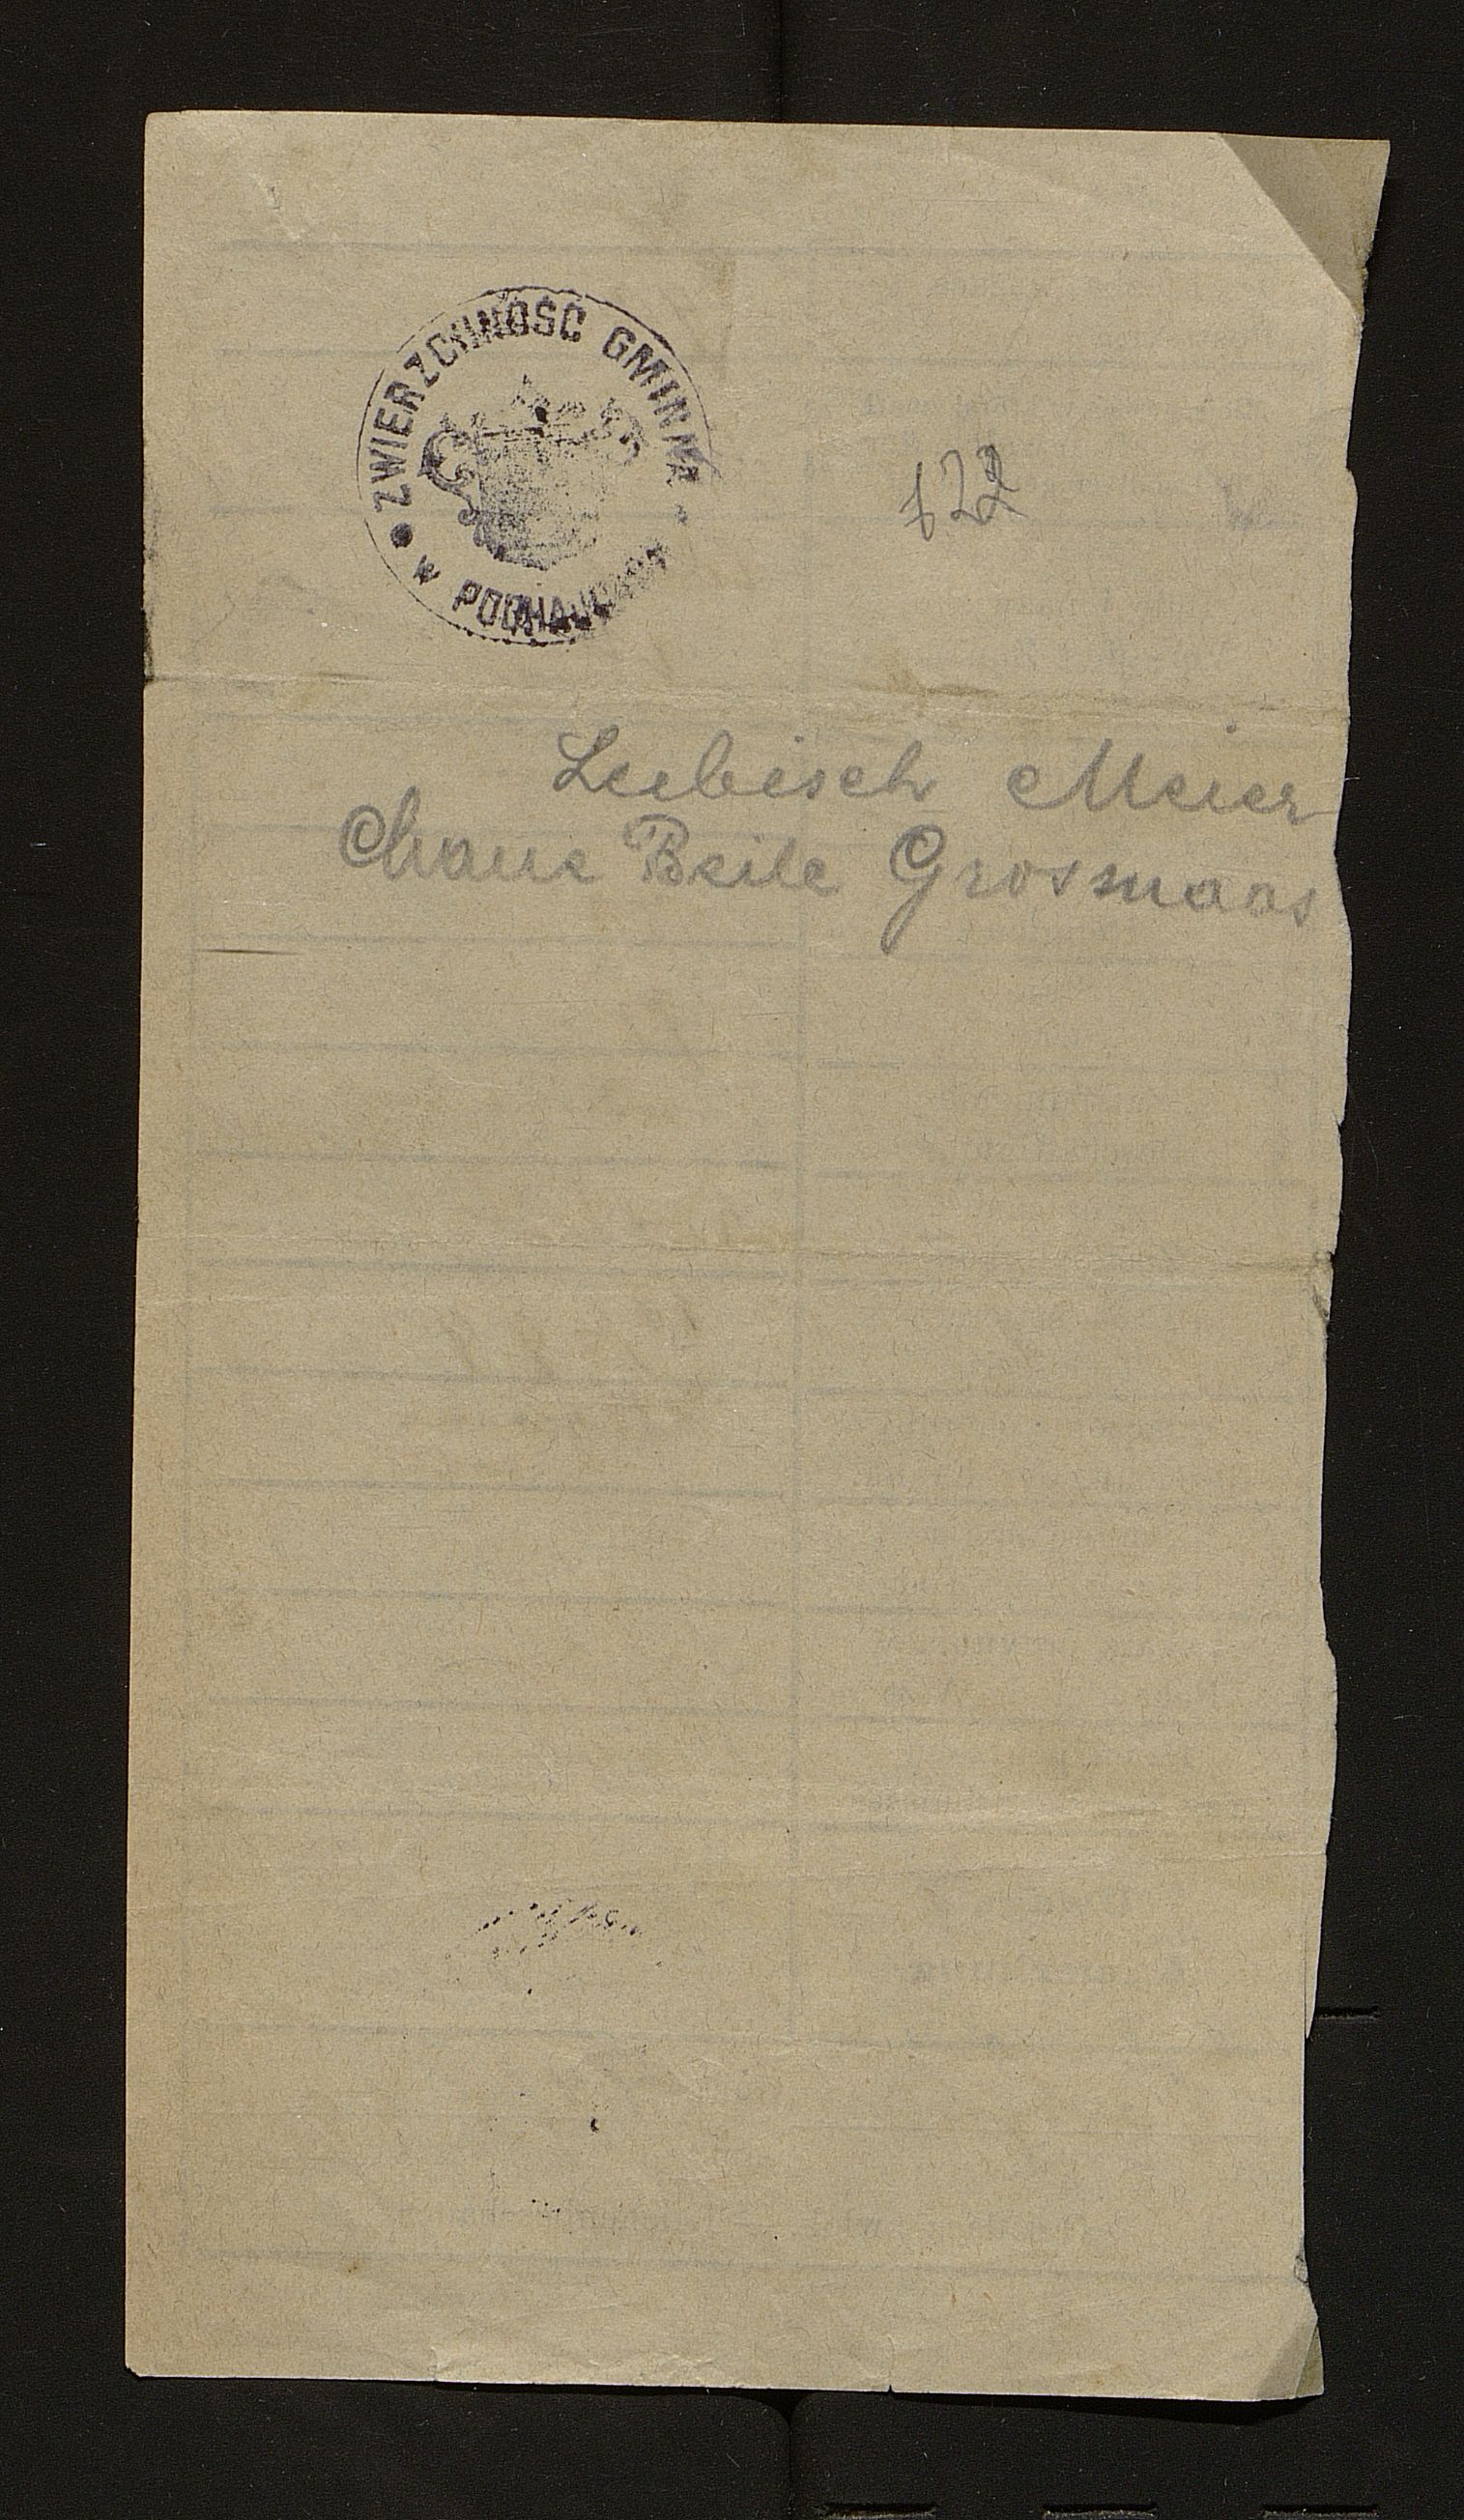 ZWIERZCHNOŚĆ GMINNA
W PODHAJCACH
122
Leebisch Meier
Chane Beile Grosmaas